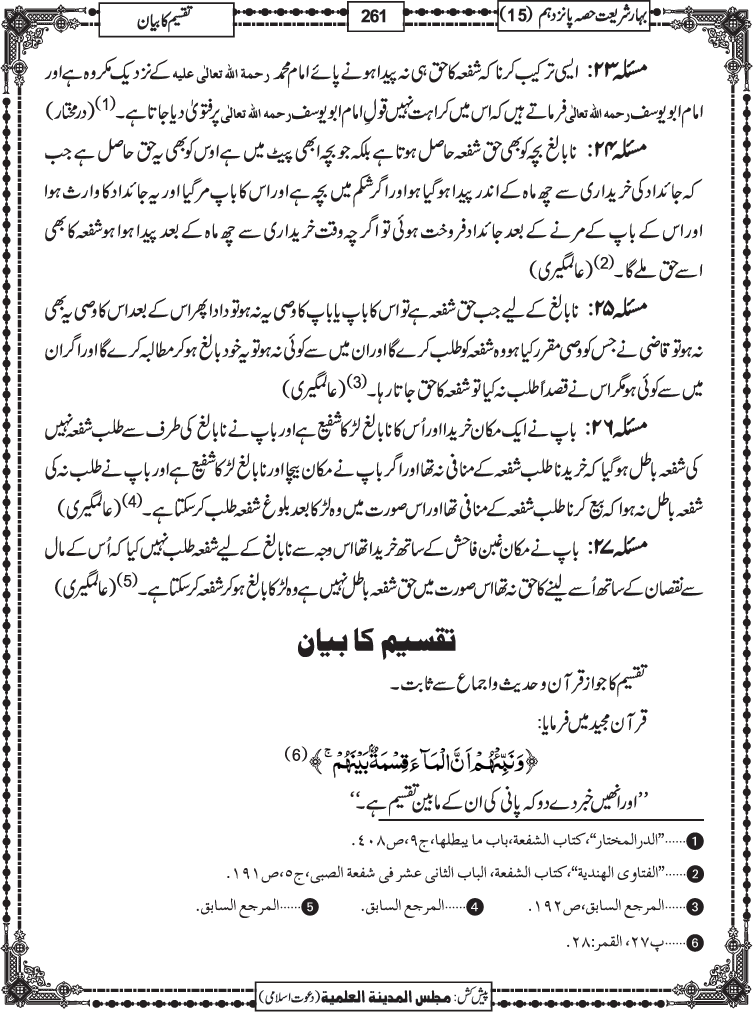 بہارِ شریعت حصہ پانزدہم (15)
261
تقسیم کا بیان
مسئلہ ۲۳: ایسی ترکیب کرنا کہ شفعہ کا حق ہی نہ پیدا ہونے پائے امام محمد رحمۃ اللہ تعالٰی علیہ کے نزدیک مکروہ ہے اور
امام ابو یوسف رحمہ اللہ تعالٰی فرماتے ہیں کہ اس میں کراہت نہیں قولِ امام ابو یوسف رحمہ اللہ تعالٰی پر فتویٰ دیا جاتا ہے۔(1) (درمختار)
مسئلہ ۲۴: نابالغ بچہ کو بھی حق شفعہ حاصل ہوتا ہے بلکہ جو بچہ ابھی پیٹ میں ہے اوس کو بھی یہ حق حاصل ہے جب
کہ جائداد کی خریداری سے چھ ماہ کے اندر پیدا ہوگیا ہو اور اگر شکم میں بچہ ہے اور اس کا باپ مرگیا اور یہ جائداد کا وارث ہوا
اور اس کے باپ کے مرنے کے بعد جائداد فروخت ہوئی تو اگرچہ وقت خریداری سے چھ ماہ کے بعد پیدا ہوا ہو شفعہ کا بھی
اسے حق ملے گا۔(2) (عالمگیری)
مسئلہ ۲۵: نابالغ کے لیے جب حق شفعہ ہے تو اس کا باپ یا باپ کا وصی یہ نہ ہو تو دادا پھر اس کے بعد اس کا وصی یہ بھی
نہ ہو تو قاضی نے جس کو وصی مقرر کیا ہو وہ شفعہ کو طلب کرے گا اور ان میں سے کوئی نہ ہو تو یہ خود بالغ ہوکر مطالبہ کرے گا اور اگر ان
میں سے کوئی ہو مگر اس نے قصداً طلب نہ کیا تو شفعہ کا حق جاتا رہا۔(3) (عالمگیری)
مسئلہ ۲۶: باپ نے ایک مکان خریدا اور اُس کا نابالغ لڑکا شفیع ہے اور باپ نے نابالغ کی طرف سے طلب شفعہ نہیں
کی شفعہ باطل ہوگیا کہ خریدنا طلب شفعہ کے منافی نہ تھا اور اگر باپ نے مکان بیچا اور نابالغ لڑکا شفیع ہے اور باپ نے طلب نہ کی
شفعہ باطل نہ ہوا کہ بیع کرنا طلب شفعہ کے منافی تھا اور اس صورت میں وہ لڑکا بعد بلوغ شفعہ طلب کرسکتا ہے۔(4) (عالمگیری)
مسئلہ ۲۷: باپ نے مکان غبن فاحش کے ساتھ خریدا تھا اس وجہ سے نابالغ کے لیے شفعہ طلب نہیں کیا کہ اُس کے مال
سے نقصان کے ساتھ اُسے لینے کا حق نہ تھا اس صورت میں حق شفعہ باطل نہیں ہے وہ لڑکا بالغ ہوکر شفعہ کرسکتا ہے۔(5) (عالمگیری)
تقسیم کا بیان
تقسیم کا جواز قرآن و حدیث و اجماع سے ثابت۔
قرآن مجید میں فرمایا:
﴿وَنَبِّئْهُمْ اَنَّ الْمَآءَ قِسْمَةٌۢ بَيْنَهُمْ ۚ﴾(6)
’’اور انھیں خبر دے دو کہ پانی کی ان کے مابین تقسیم ہے۔‘‘
1......"الدرالمختار"، کتاب الشفعة، باب ما یبطلها، ج۹، ص۴۰۸.
2......"الفتاوی الهندیة"، کتاب الشفعة، الباب الثانی عشر فی شفعة الصبی، ج۵، ص۱۹۱.
3......المرجع السابق، ص۱۹۲. 4......المرجع السابق. 5......المرجع السابق.
6......پ۲۷، القمر: ۲۸.
پیش کش: مجلس المدینۃ العلمیۃ (دعوت اسلامی)